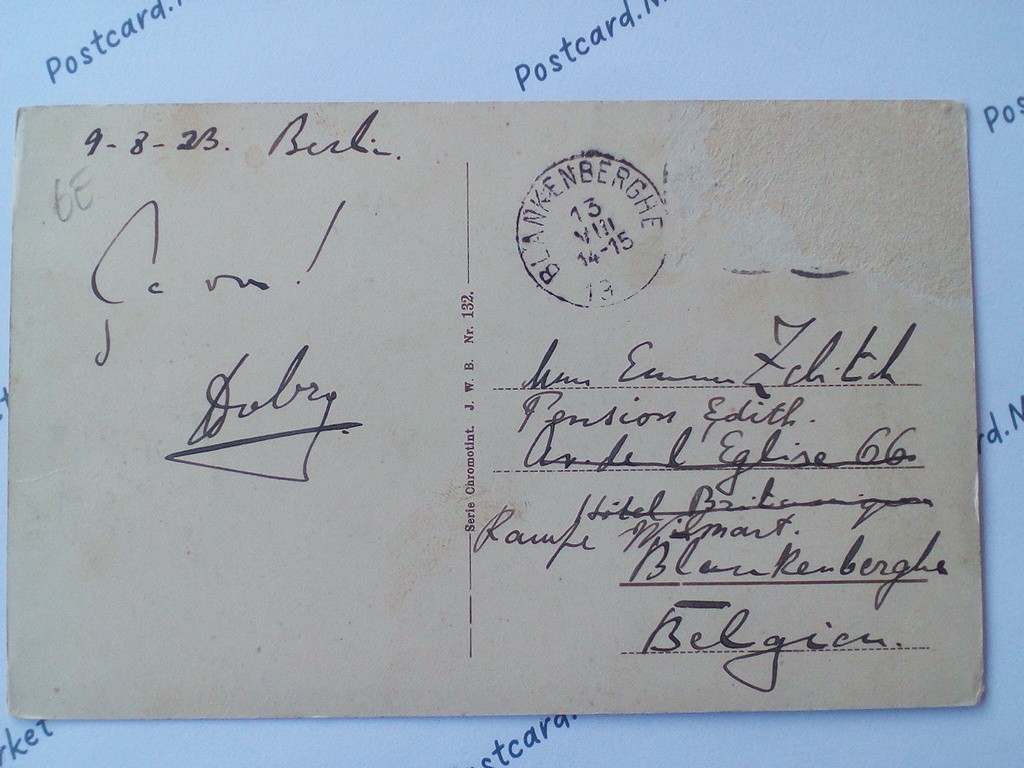 Postcard.
Postcard.M
Pos
9-8-23. Berlin.
6E
Ça va!
Dobry
Serie Chromotint. J. W. B. Nr. 132.
BLANKENBERGHE
13
VIII
14-15
Emma
Pension Edith.
l'Eglise 66
Hôtel Britannique
Rampe Wilmart.
Blankenberghe
Belgien.
rd.M
rket
stcard.